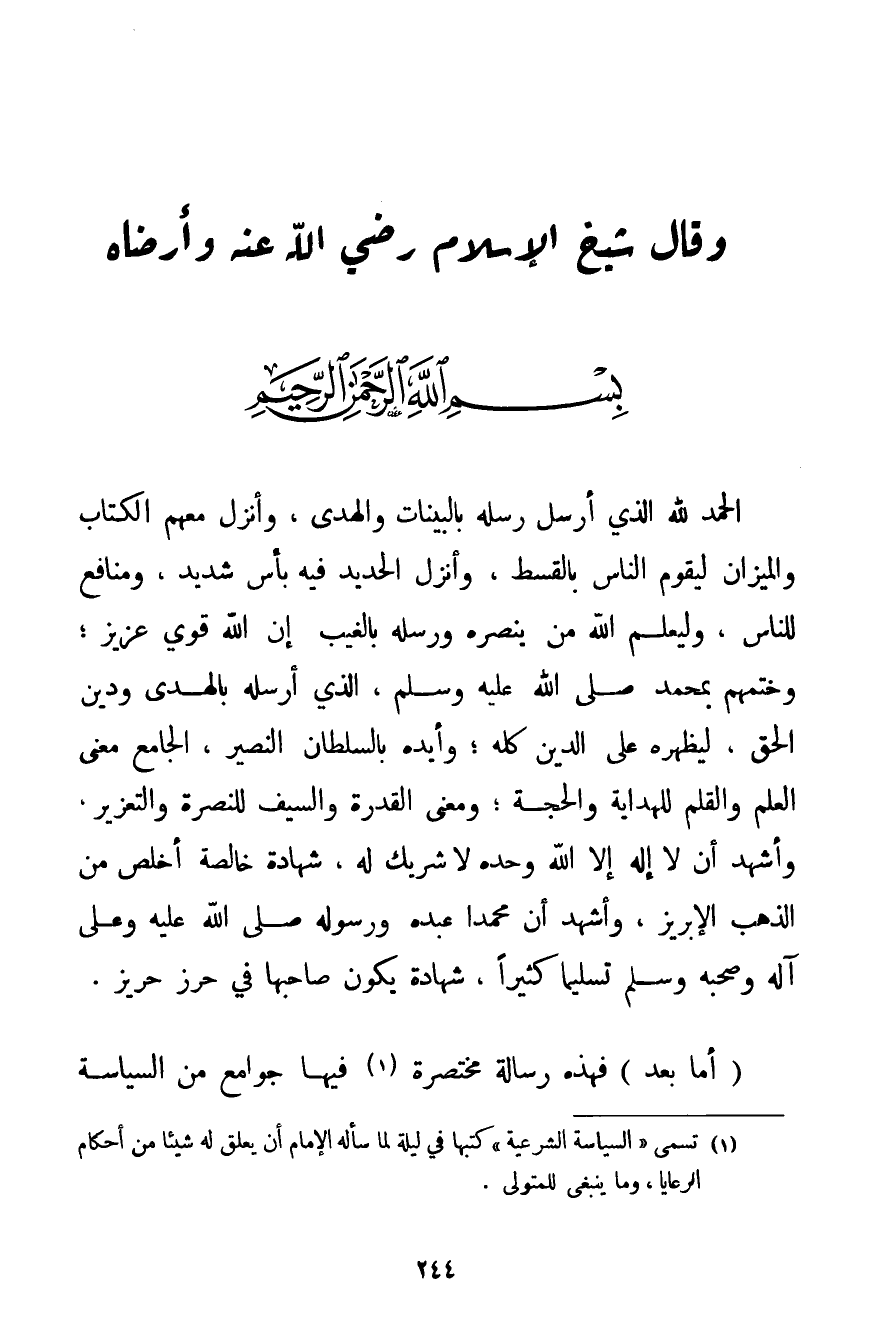 وقال شيخ الإسلام رضي الله عنه وأرضاه
بِسْمِ اللَّهِ الرَّحْمَٰنِ الرَّحِيمِ
الحمد لله الذي أرسل رسله بالبينات والهدى ، وأنزل معهم الكتاب
والميزان ليقوم الناس بالقسط ، وأنزل الحديد فيه بأس شديد ، ومنافع
للناس ، وليعلم الله من ينصره ورسله بالغيب إن الله قوي عزيز ؛
وختمهم بمحمد صلى الله عليه وسلم ، الذي أرسله بالهدى ودين
الحق ، ليظهره على الدين كله ؛ وأيده بالسلطان النصير ، الجامع معنى
العلم والقلم للهداية والحجة ؛ ومعنى القدرة والسيف للنصرة والتعزير .
وأشهد أن لا إله إلا الله وحده لا شريك له ، شهادة خالصة أخلص من
الذهب الإبريز ، وأشهد أن محمدا عبده ورسوله صلى الله عليه وعلى
آله وصحبه وسلم تسليما كثيراً ، شهادة يكون صاحبها في حرز حريز .
( أما بعد ) فهذه رسالة مختصرة (١) فيها جوامع من السياسة
(١) تسمى « السياسة الشرعية » كتبها في ليلة لما سأله الإمام أن يعلق له شيئا من أحكام
الرعايا ، وما ينبغى للمتولى .
٢٤٤